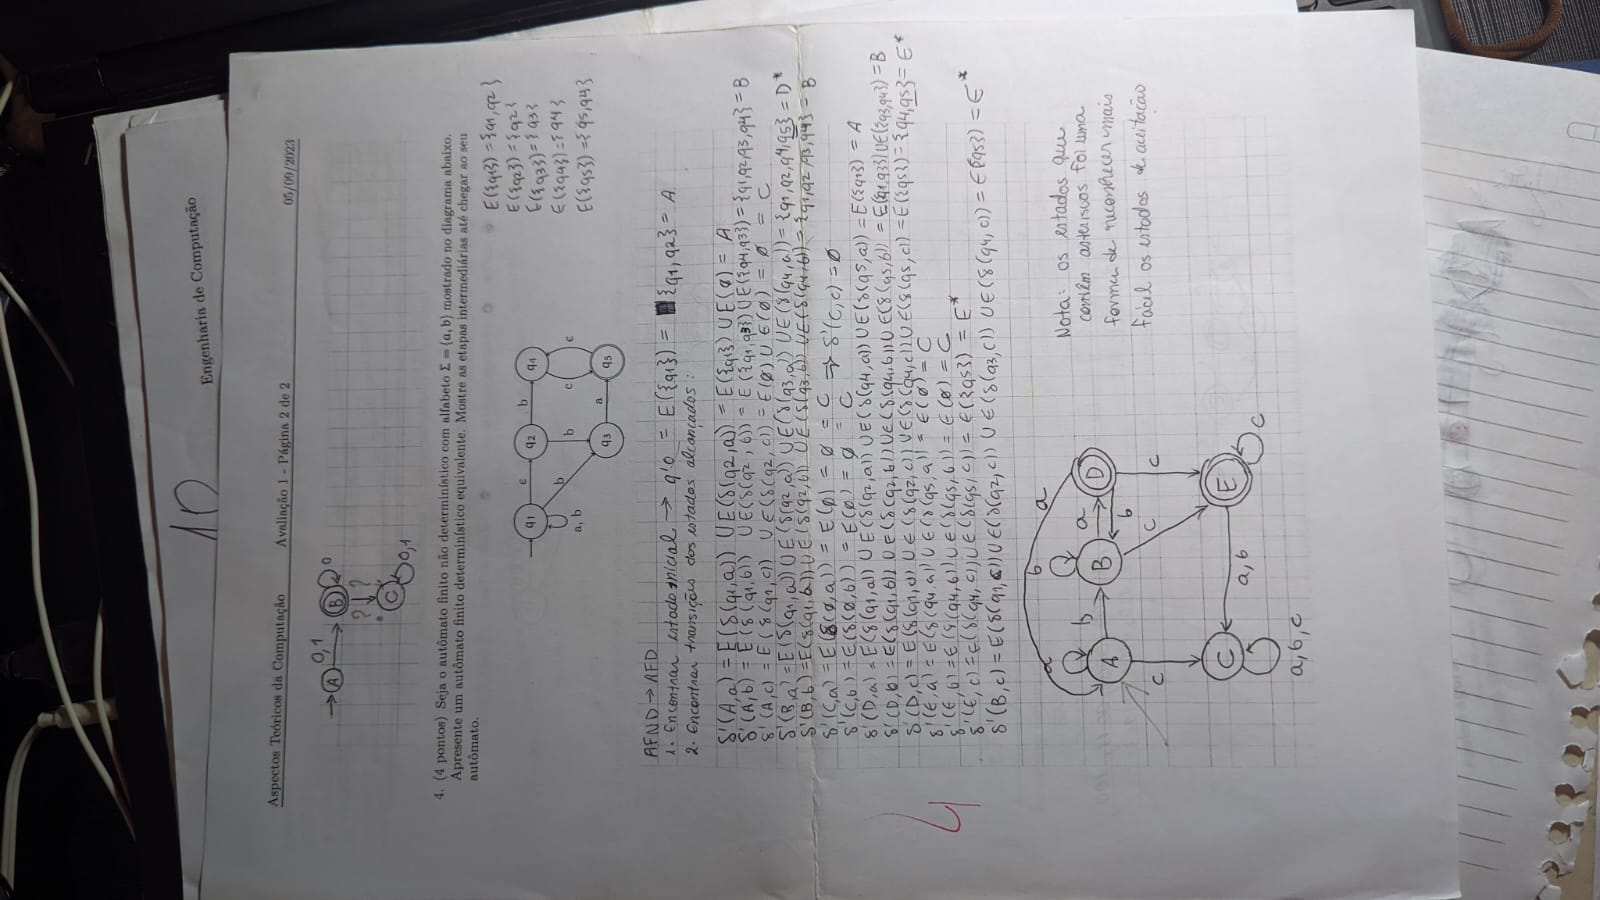 Engenharia de Computação
10
Aspectos Teóricos da Computação
Avaliação 1 - Página 2 de 2
05/09/2023
A
0,1
B
0
?
?
C
0,1
4. (4 pontos) Seja o autômato finito não determinístico com alfabeto Σ = {a, b} mostrado no diagrama abaixo.
Apresente um autômato finito determinístico equivalente. Mostre as etapas intermediárias até chegar ao seu
autômato.
E({q1}) = {q1, q2}
E({q2}) = {q2}
E({q3}) = {q3}
E({q4}) = {q4}
E({q5}) = {q5, q4}
q1
ε
q2
b
q4
a, b
b
b
c
ε
q3
a
q5
AFND → AFD
1. Encontrar estado inicial → q'0 = E({q1}) = {q1, q2} = A
2. Encontrar transições dos estados alcançados:
δ'(A,a) = E(δ(q1,a)) U E(δ(q2,a)) = E({q1}) U E(ø) = A
δ'(A,b) = E(δ(q1,b)) U E(δ(q2,b)) = E({q1,q3}) U E({q4,q3}) = {q1,q2,q3,q4} = B
δ'(A,c) = E(δ(q1,c)) U E(δ(q2,c)) = E(ø) U E(ø) = ø = C
δ'(B,a) = E(δ(q1,a)) U E(δ(q2,a)) U E(δ(q3,a)) U E(δ(q4,a)) = {q1,q2,q4,q5} = D*
δ'(B,b) = E(δ(q1,b)) U E(δ(q2,b)) U E(δ(q3,b)) U E(δ(q4,b)) = {q1,q2,q3,q4} = B
δ'(C,a) = E(δ(ø,a)) = E(ø) = ø = C ⇒ δ'(C,c) = ø
δ'(C,b) = E(δ(ø,b)) = E(ø) = ø = C
δ'(D,a) = E(δ(q1,a)) U E(δ(q2,a)) U E(δ(q4,a)) U E(δ(q5,a)) = E({q1}) = A
δ'(D,b) = E(δ(q1,b)) U E(δ(q2,b)) U E(δ(q4,b)) U E(δ(q5,b)) = E({q1,q3}) U E({q3,q4}) = B
δ'(D,c) = E(δ(q1,c)) U E(δ(q2,c)) U E(δ(q4,c)) U E(δ(q5,c)) = E({q5}) = {q4,q5} = E*
δ'(E,a) = E(δ(q4,a)) U E(δ(q5,a)) = E(ø) = C
δ'(E,b) = E(δ(q4,b)) U E(δ(q5,b)) = E(ø) = C
δ'(E,c) = E(δ(q4,c)) U E(δ(q5,c)) = E({q5}) = E*
δ'(B,c) = E(δ(q1,c)) U E(δ(q2,c)) U E(δ(q3,c)) U E(δ(q4,c)) = E({q5}) = E*
4
a
a
b
A
b
B
a
b
D
c
c
c
C
a,b
E
c
a,b,c
Nota: os estados que
contêm asterisos foi uma
forma de reconhecer mais
fácil os estados de aceitação